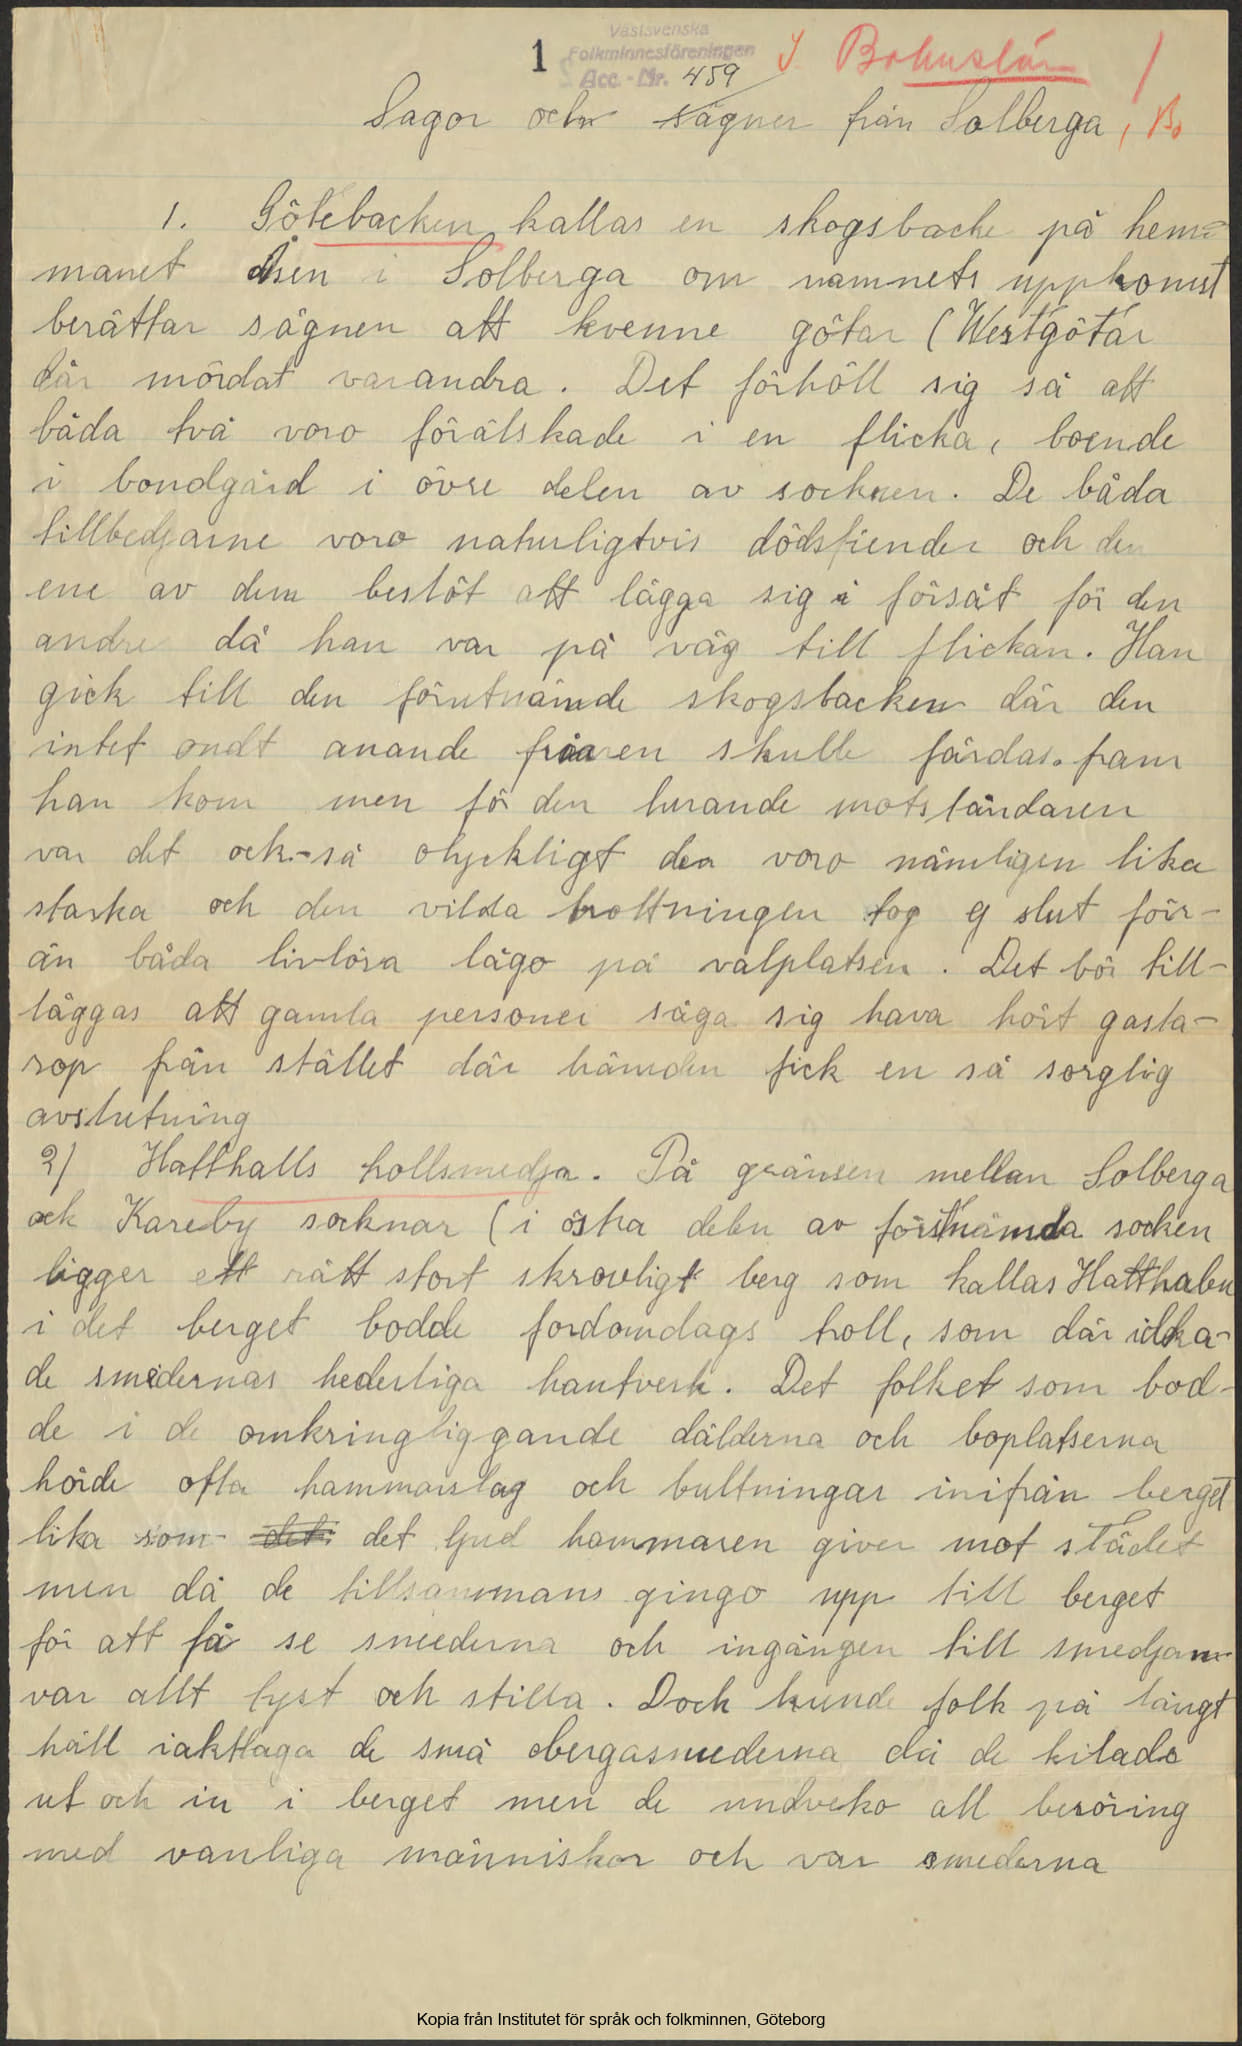 Västsvenska
Folkminnesföreningen
1
Acc.-Nr. 459
Bohuslän
Sagor och sägner från Solberga, Bo
1. Götebacken kallas en skogsbacke på hem=
manet Åsen i Solberga om namnets uppkomst
berättar sägnen att kvenne götar (Westgötar
där mördat varandra. Det förhöll sig så att
båda två voro förälskade i en flicka, boende
i bondgård i övre delen av socknen. De båda
tillbedjarne voro naturligtvis dödsfiender och den
ene av dem beslöt att lägga sig i försåt för den
andre då han var på väg till flickan. Han
gick till den förutnämde skogsbacken där den
intet ondt anande friaren skulle färdas. fram
han kom men för den lurande motståndaren
var det ock-så olyckligt den voro nämligen lika
starka och den vilda brottningen tog ej slut förr-
än båda livlösa lågo på valplatsen. Det bör till-
läggas att gamla personer säga sig hava hört gasta-
rop från stället där händen fick en så sorglig
avslutning
2) Hatthalls trollsmedja. På gränsen mellan Solberga
och Kareby socknar (i östra delen av förstnämda socken
ligger ett rätt stort skrovligt berg som kallas Hatthalen
i det berget bodde fordomdags troll, som där idka-
de smedernas hederliga hantverk. Det folket som bod-
de i de omkringliggande dälderna och boplatserna
hörde ofta hammarslag och bultningar inifrån berget
lika som det det ljud hammaren giver mot städet
men då de tillsammans gingo upp till berget
för att få se smederna och ingången till smedjan
var allt tyst och stilla. Dock kunde folk på långt
håll iakttaga de små obergasmederna då de kilade
ut och in i berget men de undveko all beröring
med vanliga människor och var smederna
Kopia från Institutet för språk och folkminnen, Göteborg